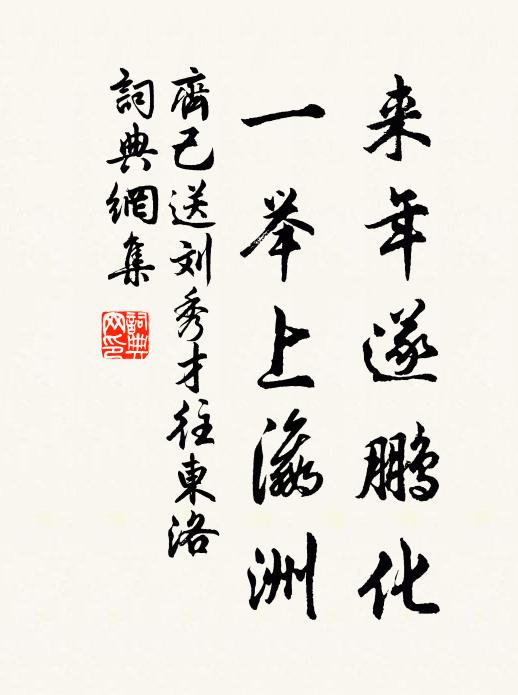 来年遂鹏化
一举上瀛洲
齊己送刘秀才往東洛
詞典網集
詞典
网印